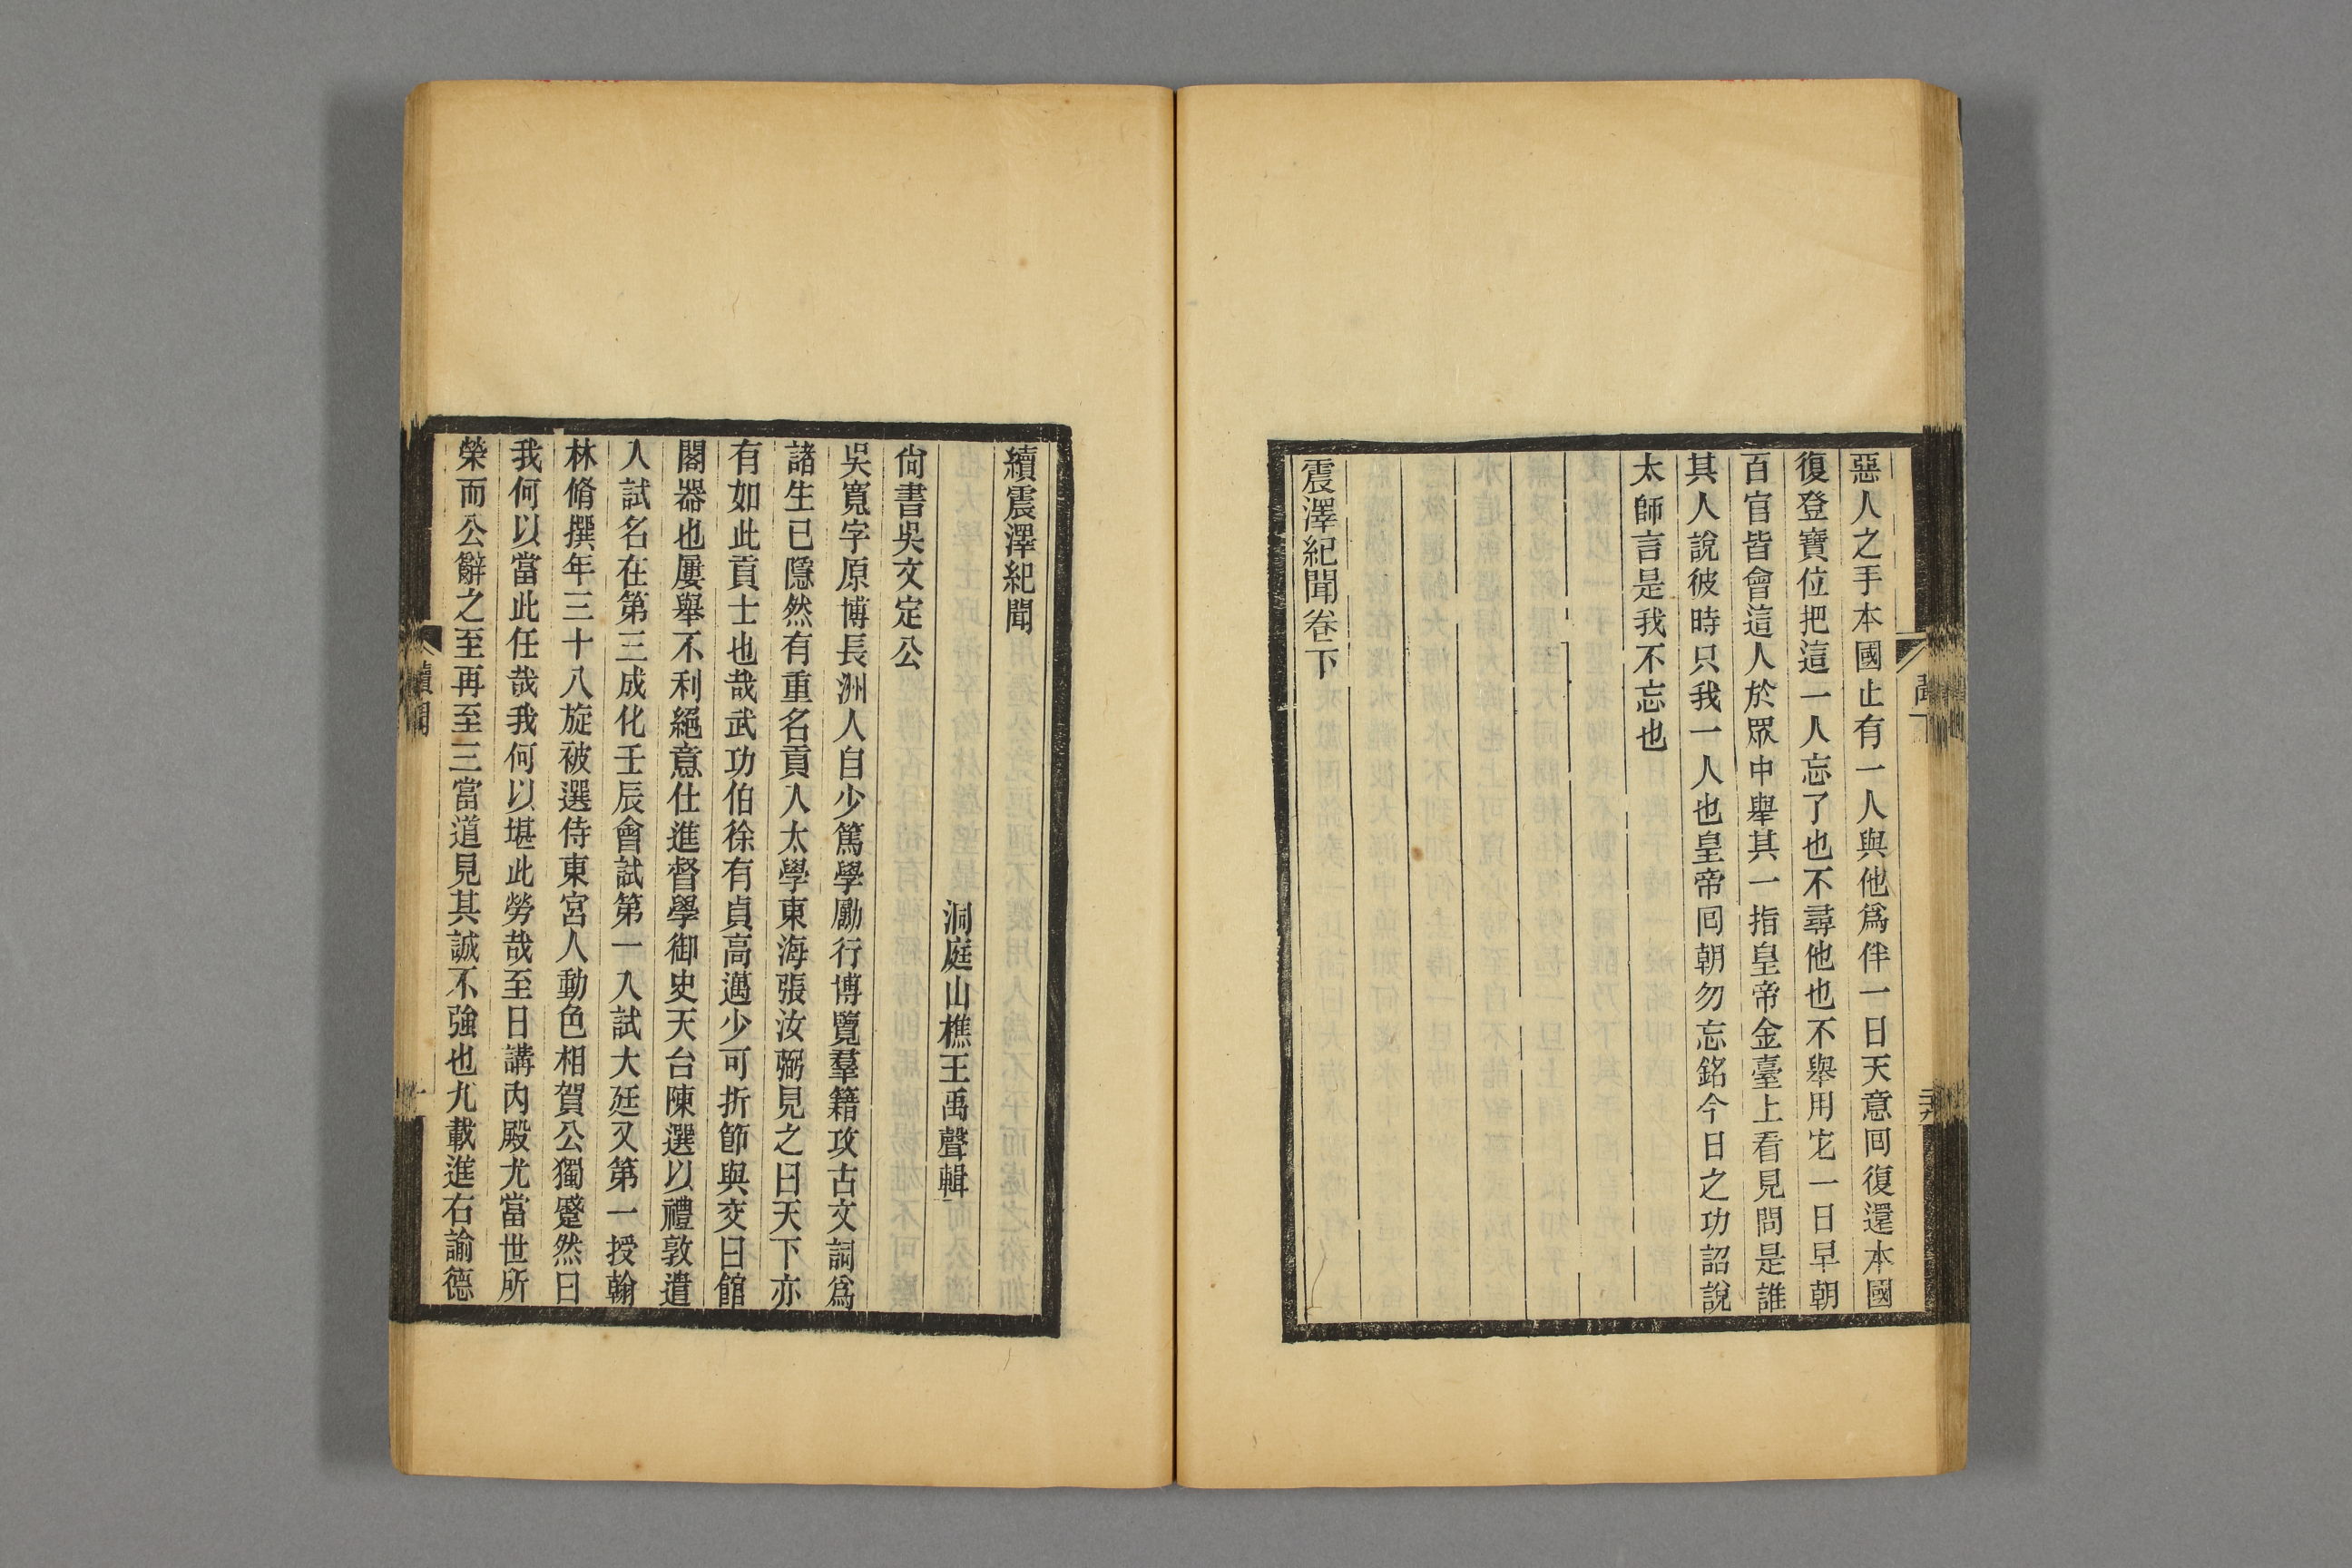 惡人之手本國止有一人與他爲伴一日天意囘復還本國
復登寶位把這一人忘了也不尋他也不舉用它一日早朝
百官皆會這人於眾中舉其一指皇帝金臺上看見問是誰
其人說彼時只我一人也皇帝囘朝勿忘銘今日之功詔說
太師言是我不忘也
震澤紀聞卷下
續震澤紀聞
洞庭山樵王禹聲輯
尙書吳文定公
吳寬字原博長洲人自少篤學勵行博覽羣籍攻古文詞爲
諸生已隱然有重名貢入太學東海張汝弼見之曰天下亦
有如此貢士也哉武功伯徐有貞高邁少可折節與交曰館
閣器也屢舉不利絕意仕進督學御史天台陳選以禮敦遣
入試名在第三成化壬辰會試第一入試大廷又第一授翰
林脩撰年三十八旋被選侍東宮人動色相賀公獨蹙然曰
我何以當此任哉我何以堪此勞哉至日講內殿尤當世所
榮而公辭之至再至三當道見其誠不強也九載進右諭德
續聞
一